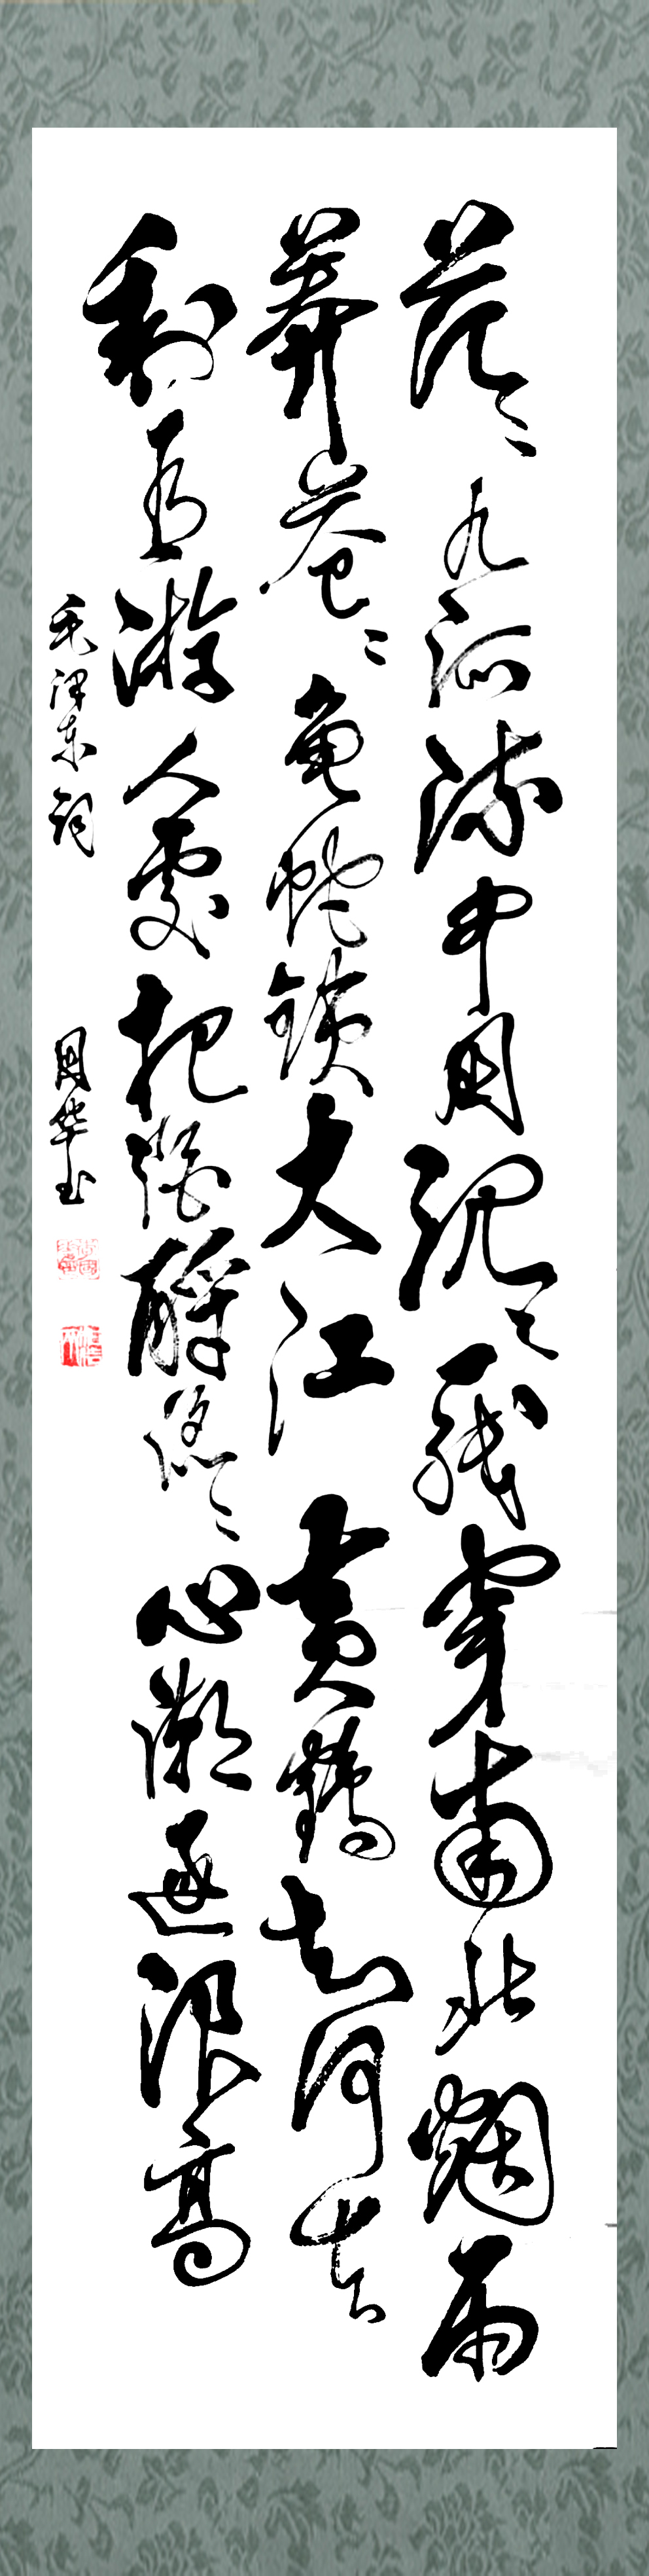 茫々九派流中国沉々一线穿南北烟雨
莽苍々龟蛇锁大江黄鹤知何去
剩有游人处把酒酹滔々心潮逐浪高
毛泽东词 国华书